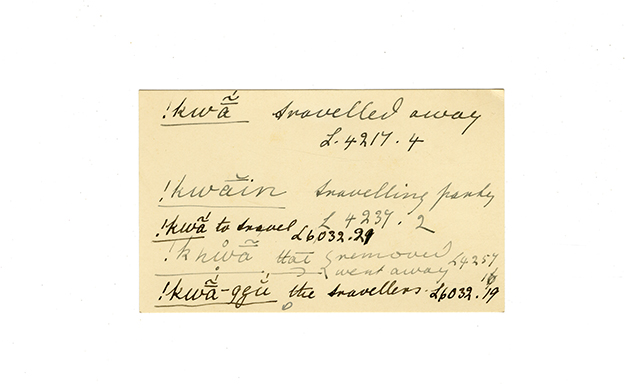 !kwā̰́ travelled away
L. 4217. 4
!kwā̰in travelling party
L 4237. 2
!kwā̰ to travel L6032.29
!khwā̰ { removed
{ went away L4257
16
!kwā̰́-ggú the travellers. L6032.19